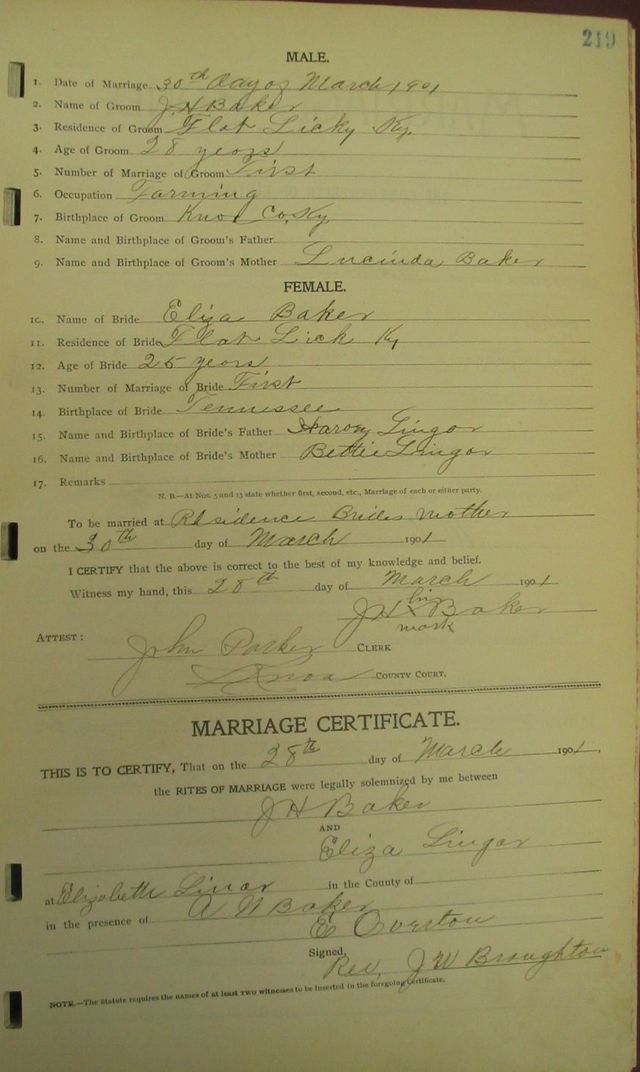 219
MALE.
1. Date of Marriage 30th day of March 1901
2. Name of Groom J. H. Baker
3. Residence of Groom Flat Licky Ky.
4. Age of Groom 28 years
5. Number of Marriage of Groom First
6. Occupation Farming
7. Birthplace of Groom Knox Co, Ky
8. Name and Birthplace of Groom's Father
9. Name and Birthplace of Groom's Mother Lucinda Baker
FEMALE.
10. Name of Bride Eliza Baker
11. Residence of Bride Flat Lick Ky
12. Age of Bride 25 years
13. Number of Marriage of Bride First
14. Birthplace of Bride Tennessee
15. Name and Birthplace of Bride's Father Lingar
16. Name and Birthplace of Bride's Mother Bettie Lingar
17. Remarks
N. B.—At Nos. 5 and 13 state whether first, second, etc., Marriage of each or either party.
To be married at Residence Brides Mother
on the 30th day of March 1901
I CERTIFY that the above is correct to the best of my knowledge and belief.
Witness my hand, this 28th day of March 1901
his
J H x Baker
mark
ATTEST: John Parker CLERK
Knox COUNTY COURT.
MARRIAGE CERTIFICATE.
THIS IS TO CERTIFY, That on the 28th day of March 1901,
the RITES OF MARRIAGE were legally solemnized by me between
J H Baker
AND
Eliza Lingar
at Elizabeth Linar in the County of
in the presence of A N Baker
E Overton
Signed,
Rev, J W Broughton
NOTE.—The Statute requires the names of at least two witnesses to be inserted in the foregoing Certificate.